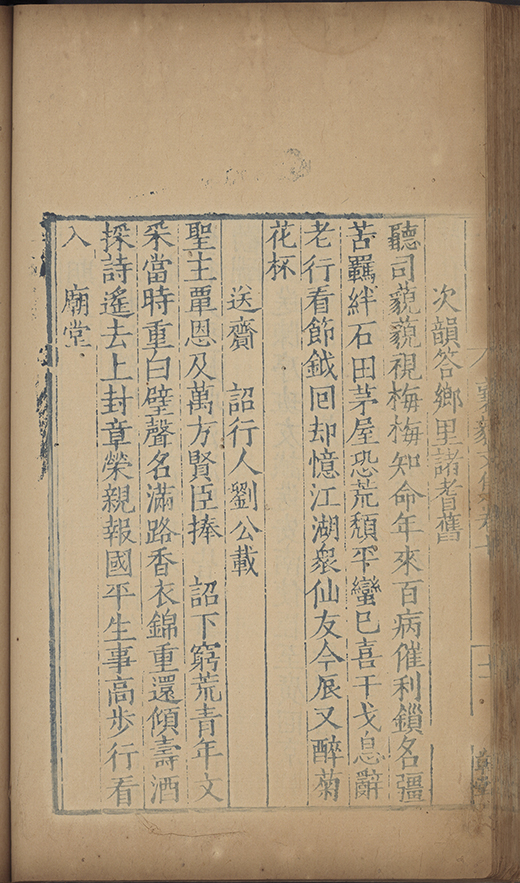 次韻答鄉里諸耆舊
聽司藐藐視梅梅知命年來百病催利鎖名疆
苦羈絆石田茅屋恐荒頹平蠻已喜干戈息辭
老行看節鉞囘却憶江湖衆仙友今辰又醉菊
花杯
送齎 詔行人劉公載
聖主覃恩及萬方賢臣捧 詔下窮荒青年文
采當時重白璧聲名滿路香衣錦重還傾壽酒
探詩遙去上封章榮親報國平生事高步行看
入 廟堂